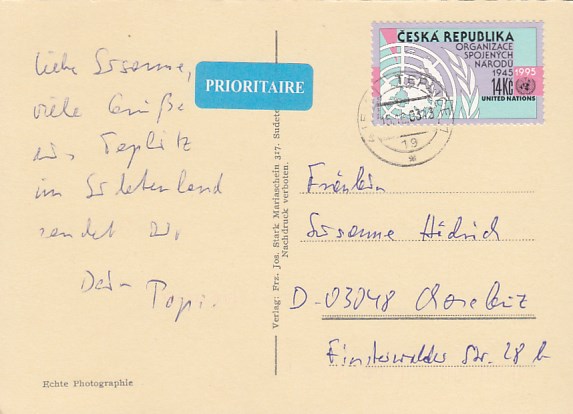 Liebe Susanne,
viele Grüße
aus Teplitz
im Sudetenland
sendet Dir
Dein Papi.
Echte Photographie
Verlag: Frz. Jos. Stark Mariaschein 317. Sudeten
Nachdruck verboten.
PRIORITAIRE
ČESKÁ REPUBLIKA
ORGANIZACE
SPOJENÝCH
NÁRODŮ
1945 1995
14 Kč
UNITED NATIONS
TEPLICE 1
19
Fräulein
Susanne
D-03048
Finsterwalder Str. 28 b